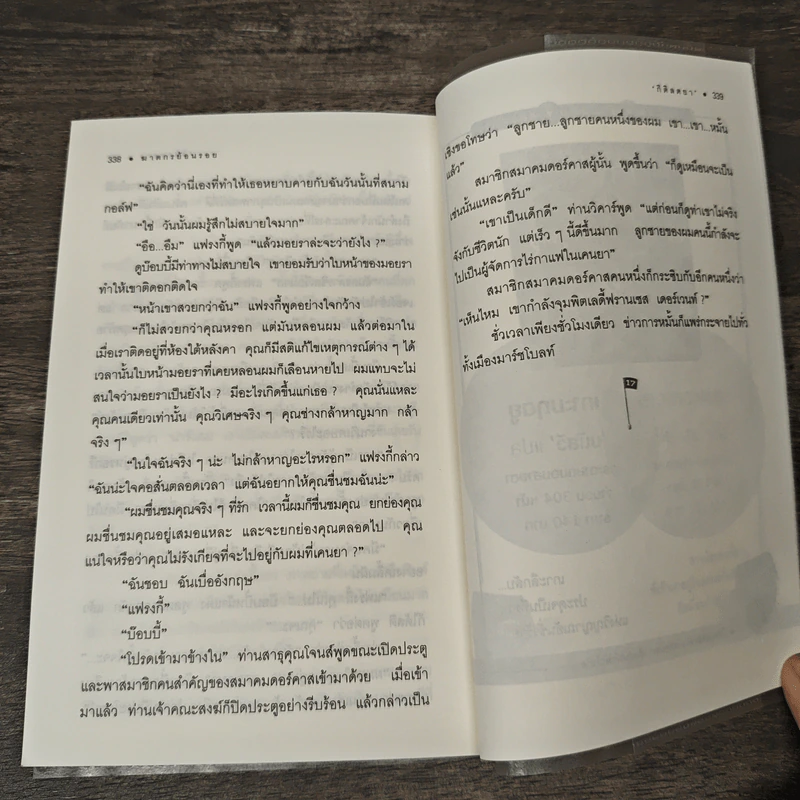 338 • ฆาตกรย้อนรอย
“ฉันคิดว่านี่เองที่ทำให้เธอหยาบคายกับฉันวันนั้นที่สนาม
กอล์ฟ”
“ใช่ วันนั้นผมรู้สึกไม่สบายใจมาก”
“อือ...อืม” แฟรงกี้พูด “แล้วมอยราล่ะจะว่ายังไง ?”
ดูบ๊อบบี้มีท่าทางไม่สบายใจ เขายอมรับว่าใบหน้าของมอยรา
ทำให้เขาติดอกติดใจ
“หน้าเขาสวยกว่าฉัน” แฟรงกี้พูดอย่างใจกว้าง
“ก็ไม่สวยกว่าคุณหรอก แต่มันหลอนผม แล้วต่อมาใน
เมื่อเราติดอยู่ที่ห้องใต้หลังคา คุณก็มีสติแก้ไขเหตุการณ์ต่าง ๆ ได้
เวลานั้นใบหน้ามอยราที่เคยหลอนผมก็เลือนหายไป ผมแทบจะไม่
สนใจว่ามอยราเป็นยังไง ? มีอะไรเกิดขึ้นแก่เธอ ? คุณนั่นแหละ
คุณคนเดียวเท่านั้น คุณวิเศษจริง ๆ คุณช่างกล้าหาญมาก กล้า
จริง ๆ”
“ในใจฉันจริง ๆ น่ะ ไม่กล้าหาญอะไรหรอก” แฟรงกี้กล่าว
“ฉันน่ะใจคอสั่นตลอดเวลา แต่ฉันอยากให้คุณชื่นชมฉันน่ะ”
“ผมชื่นชมคุณจริง ๆ ที่รัก เวลานี้ผมก็ชื่นชมคุณ ยกย่องคุณ
ผมชื่นชมคุณอยู่เสมอแหละ และจะยกย่องคุณตลอดไป คุณ
แน่ใจหรือว่าคุณไม่รังเกียจที่จะไปอยู่กับผมที่เคนยา ?”
“ฉันชอบ ฉันเบื่ออังกฤษ”
“แฟรงกี้”
“บ๊อบบี้”
“โปรดเข้ามาข้างใน” ท่านสาธุคุณโจนส์พูดขณะเปิดประตู
และพาสมาชิกคนสำคัญของสมาคมดอร์คาสเข้ามาด้วย เมื่อเข้า
มาแล้ว ท่านเจ้าคณะสงฆ์ก็ปิดประตูอย่างรีบร้อน แล้วกล่าวเป็น
‘กิติลสยา’ • 339
เชิงขอโทษว่า “ลูกชาย...ลูกชายคนหนึ่งของผม เขา...เขา...หมั้น
แล้ว”
สมาชิกสมาคมดอร์คาสผู้นั้น พูดขึ้นว่า “ก็ดูเหมือนจะเป็น
เช่นนั้นแหละครับ”
“เขาเป็นเด็กดี” ท่านวิคาร์พูด “แต่ก่อนก็ดูท่าเขาไม่จริง
จังกับชีวิตนัก แต่เร็ว ๆ นี้ดีขึ้นมาก ลูกชายของผมคนนี้กำลังจะ
ไปเป็นผู้จัดการไร่กาแฟในเคนยา”
สมาชิกสมาคมดอร์คาสคนหนึ่งก็กระซิบกับอีกคนหนึ่งว่า
“เห็นไหม เขากำลังจุมพิตเลดี้ฟรานเซส เดอร์เวนท์ ?”
ชั่วเวลาเพียงชั่วโมงเดียว ข่าวการหมั้นก็แพร่กระจายไปทั่ว
ทั้งเมืองมาร์ชโบลท์
17